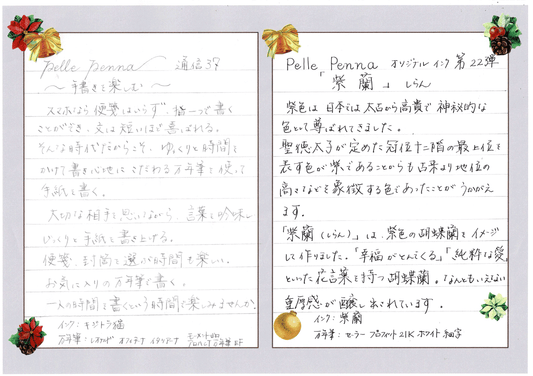 Pelle Penna 通信37
～手書きを楽しむ～
スマホなら便箋はいらず、指一つで書く
ことができ、文は短いほど喜ばれる。
そんな時代だからこそ、ゆっくりと時間を
かけて書き心地にこだわる万年筆を使って
手紙を書く。
大切な相手を思いながら、言葉を吟味し
じっくりと手紙を書き上げる。
便箋、封筒を選ぶ時間も楽しい。
お気に入りの万年筆で書く。
一人の時間を書くという時間で楽しみませんか。
インク：キジトラ猫
万年筆：レオナルド
Pelle Penna オリジナルインク 第22弾
「紫蘭」しらん
紫色は日本では太古から高貴で神秘的な
色として尊ばれてきました。
聖徳太子が定めた冠位十二階の最上位を
表す色が紫であることからも古来より地位の
高さなどを象徴する色であったことがうかがえ
ます。
「紫蘭（しらん）」は、紫色の胡蝶蘭をイメージ
して作りました。「幸福がとんでくる」「純粋な愛」
といった花言葉を持つ胡蝶蘭。なんともいえない
重厚感が醸し出されています。
インク：紫蘭
万年筆：セーラー プロフィット21K ホワイト 細字